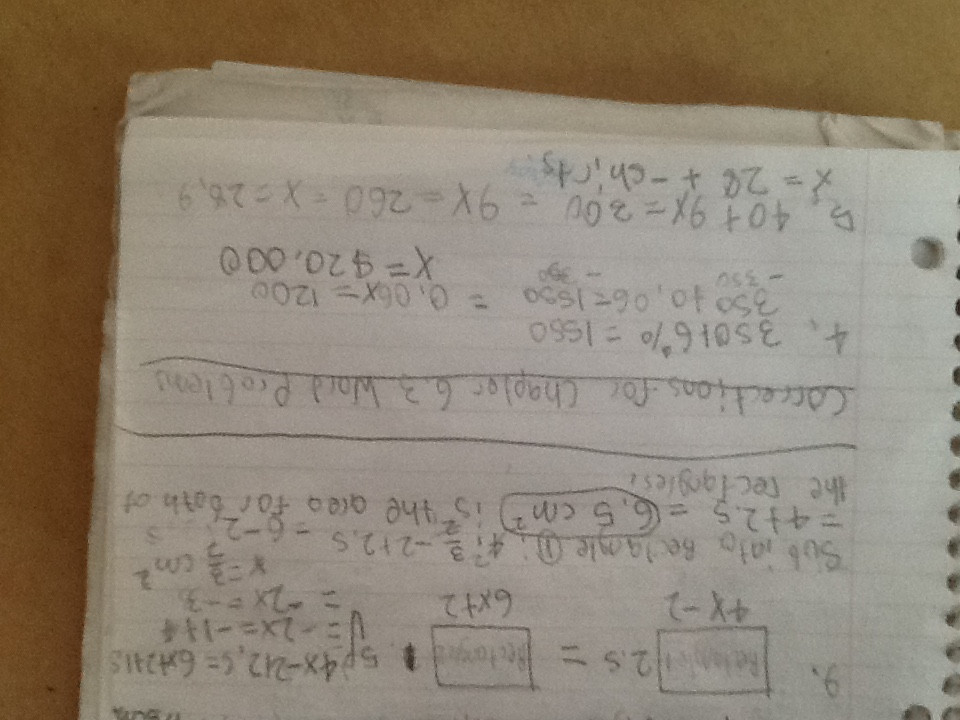 9. Rectangle 1 2.5 = Rectangle 1.5 4x-2+2.5=6x+2+1.5
4x-2 6x+2 = -2x=-1+4
= -2x=-3
x=3/2 cm²
Sub into Rectangle ①: 4·3/2 -2+2.5 = 6-2
=4+2.5 = 6.5 cm² is the area for both of
the rectangles.
Corrections for Chapter 6.3 Word Problems
4. 350+6% = 1550
350+0.06=1550 = 0.06x=1200
-350 -350 x=$20,000
5. 40+9x=300 = 9x=260 = x=28.9
x=28 t-shirts.